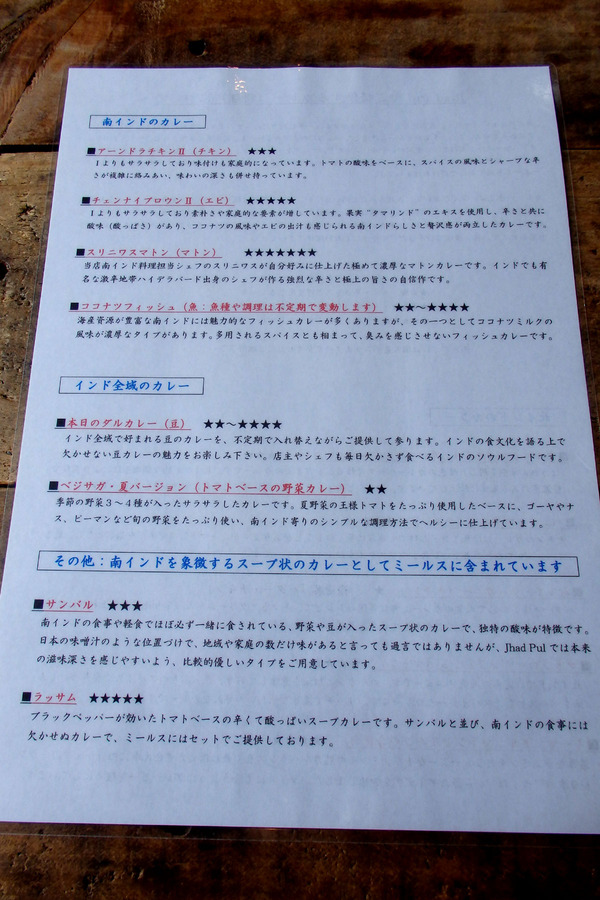 南インドのカレー
■アーンドラチキンⅡ（チキン） ★★★
Ⅰよりもサラサラしており味付けも家庭的になっています。トマトの酸味をベースに、スパイスの風味とシャープな辛
さが複雑に絡みあい、味わいの深さも併せ持っています。
■チェンナイブロウンⅡ（エビ） ★★★★★
Ⅰよりもサラサラしており素朴さや家庭的な要素が増しています。果実“タマリンド”のエキスを使用し、辛さと共に
酸味（酸っぱさ）があり、ココナツの風味やエビの出汁も感じられる南インドらしさと贅沢感が両立したカレーです。
■スリニワスマトン（マトン） ★★★★★★★
当店南インド料理担当シェフのスリニワスが自分好みに仕上げた極めて濃厚なマトンカレーです。インドでも有
名な激辛地帯ハイデラバード出身のシェフが作る強烈な辛さと極上の旨さの自信作です。
■ココナツフィッシュ（魚：魚種や調理は不定期で変動します） ★★～★★★★
海産資源が豊富な南インドには魅力的なフィッシュカレーが多くありますが、その一つとしてココナツミルクの
風味が濃厚なタイプがあります。多用されるスパイスとも相まって、臭みを感じさせないフィッシュカレーです。
インド全域のカレー
■本日のダルカレー（豆） ★★～★★★★
インド全域で好まれる豆のカレーを、不定期で入れ替えながらご提供して参ります。インドの食文化を語る上で
欠かせない豆カレーの魅力をお楽しみ下さい。店主やシェフも毎日欠かさず食べるインドのソウルフードです。
■ベジサガ・夏バージョン（トマトベースの野菜カレー） ★★
季節の野菜３～４種が入ったサラサラしたカレーです。夏野菜の王様トマトをたっぷり使用したベースに、ゴーヤやナ
ス、ピーマンなど旬の野菜をたっぷり使い、南インド寄りのシンプルな調理方法でヘルシーに仕上げています。
その他：南インドを象徴するスープ状のカレーとしてミールスに含まれています
■サンバル ★★★
南インドの食事や軽食でほぼ必ず一緒に食されている、野菜や豆が入ったスープ状のカレーで、独特の酸味が特徴です。
日本の味噌汁のような位置づけで、地域や家庭の数だけ味があると言っても過言ではありませんが、Jhad Pul では本来
の滋味深さを感じやすいよう、比較的優しいタイプをご用意しています。
■ラッサム ★★★★★
ブラックペッパーが効いたトマトベースの辛くて酸っぱいスープカレーです。サンバルと並び、南インドの食事には
欠かせぬカレーで、ミールスにはセットでご提供しております。